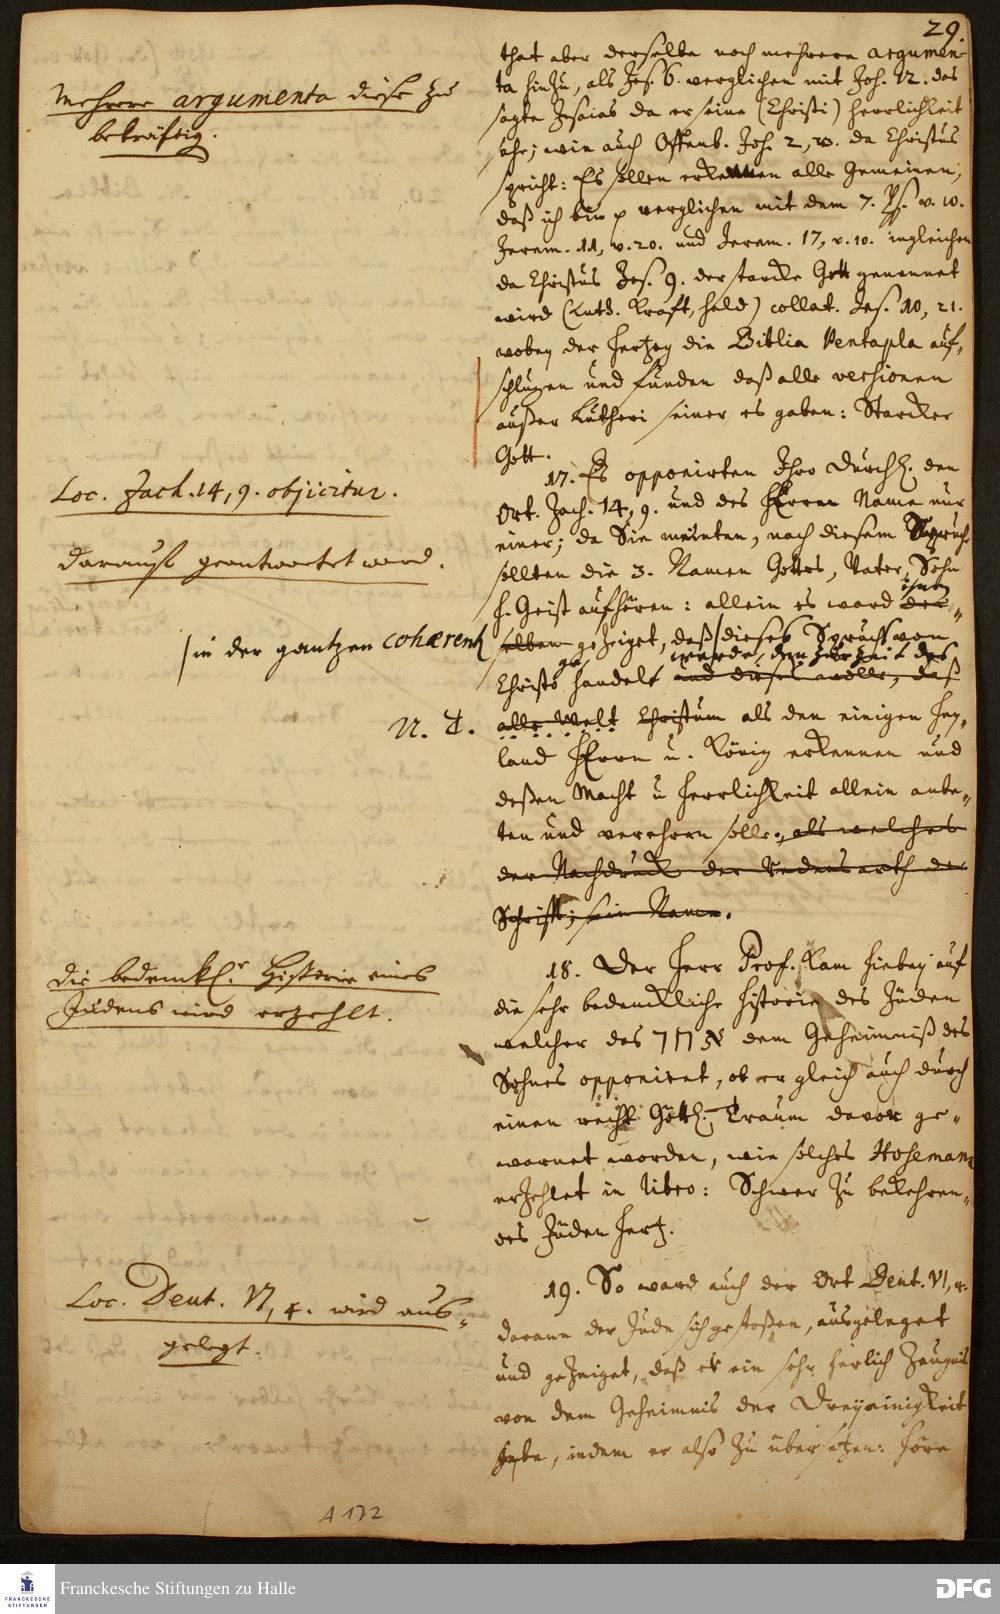 29.
that aber derselbe noch mehrere argumen-
ta hinzu, als Jes. 6. verglichen mit Joh. 12. das
sagte Jesaias da er seine (Christi) Herrlichkeit
sahe; wie auch Offenb. Joh. 2, 23. da Christus
spricht: Es sollen erkennen alle Gemeinen,
daß ich bin p verglichen mit dem 7. Ps. v. 10.
Jerem. 11, v. 20. und Jerem. 17, v. 10. ingleichen
da Christus Jes. 9. der starcke Gott genennet
wird (Luth. Krafft, Held) collat. Jes. 10, 21.
wobey der Hertzog die Biblia Pentapla auf-
schlugen und funden daß alle versionen
außer Lutheri seiner es gaben: Starcker
Gott.
Mehrere argumenta diese zu
bekräftig.
17. Es opponirten Ihro Durchl. den
Ort. Zach. 14, 9. und des Herrn Name nur
einer; da Sie meinten, nach diesem Spruch
sollten die 3. Namen Gottes, Vater, Sohn
H. Geist aufhören: allein es ward der-
ihnen
selben gezeiget, daß / dieser Spruch von
werde, den zur Zeit des
Christo gehandelt und dieses wolle, daß
alle Welt Christum als den einigen Hey-
land Herrn u. König erkennen und
deßen Macht u Herrlichkeit allein anbe-
ten und verehren solle, als welches
der Nachdruck der Redensarth der
Schrifft; sein Name.
Loc. Zach. 14, 9. objicitur.
darauf geantwortet ward.
/ in der gantzen cohærentz
N. T.
18. Der Herr Prof. kam hiebey auf
die sehr bedenckliche Historie des Jüden
welcher das אחד dem Geheimniß des
Sohnes opponiret, ob er gleich auch durch
einen recht Göttl. Traum davon ge-
warnet worden, wie solches Hosemann
erzehlet in libro: Schwer zu bekehren-
des Jüden Hertz.
Die bedenckl. Historie eines
Judens wird erzehlt.
19. So ward auch der Ort Deut. VI, 4.
daran der Jude sich gestoßen, ausgeleget
und gezeiget, daß es ein sehr herlich Zeugnis
von dem Geheimnis der Dreyeinigkeit
habe, indem er also zu übersetzen: Höre
Loc. Deut. VI, 4. wird aus-
gelegt.
A 172
FRANCKESCHE
STIFTUNGEN
Franckesche Stiftungen zu Halle
DFG